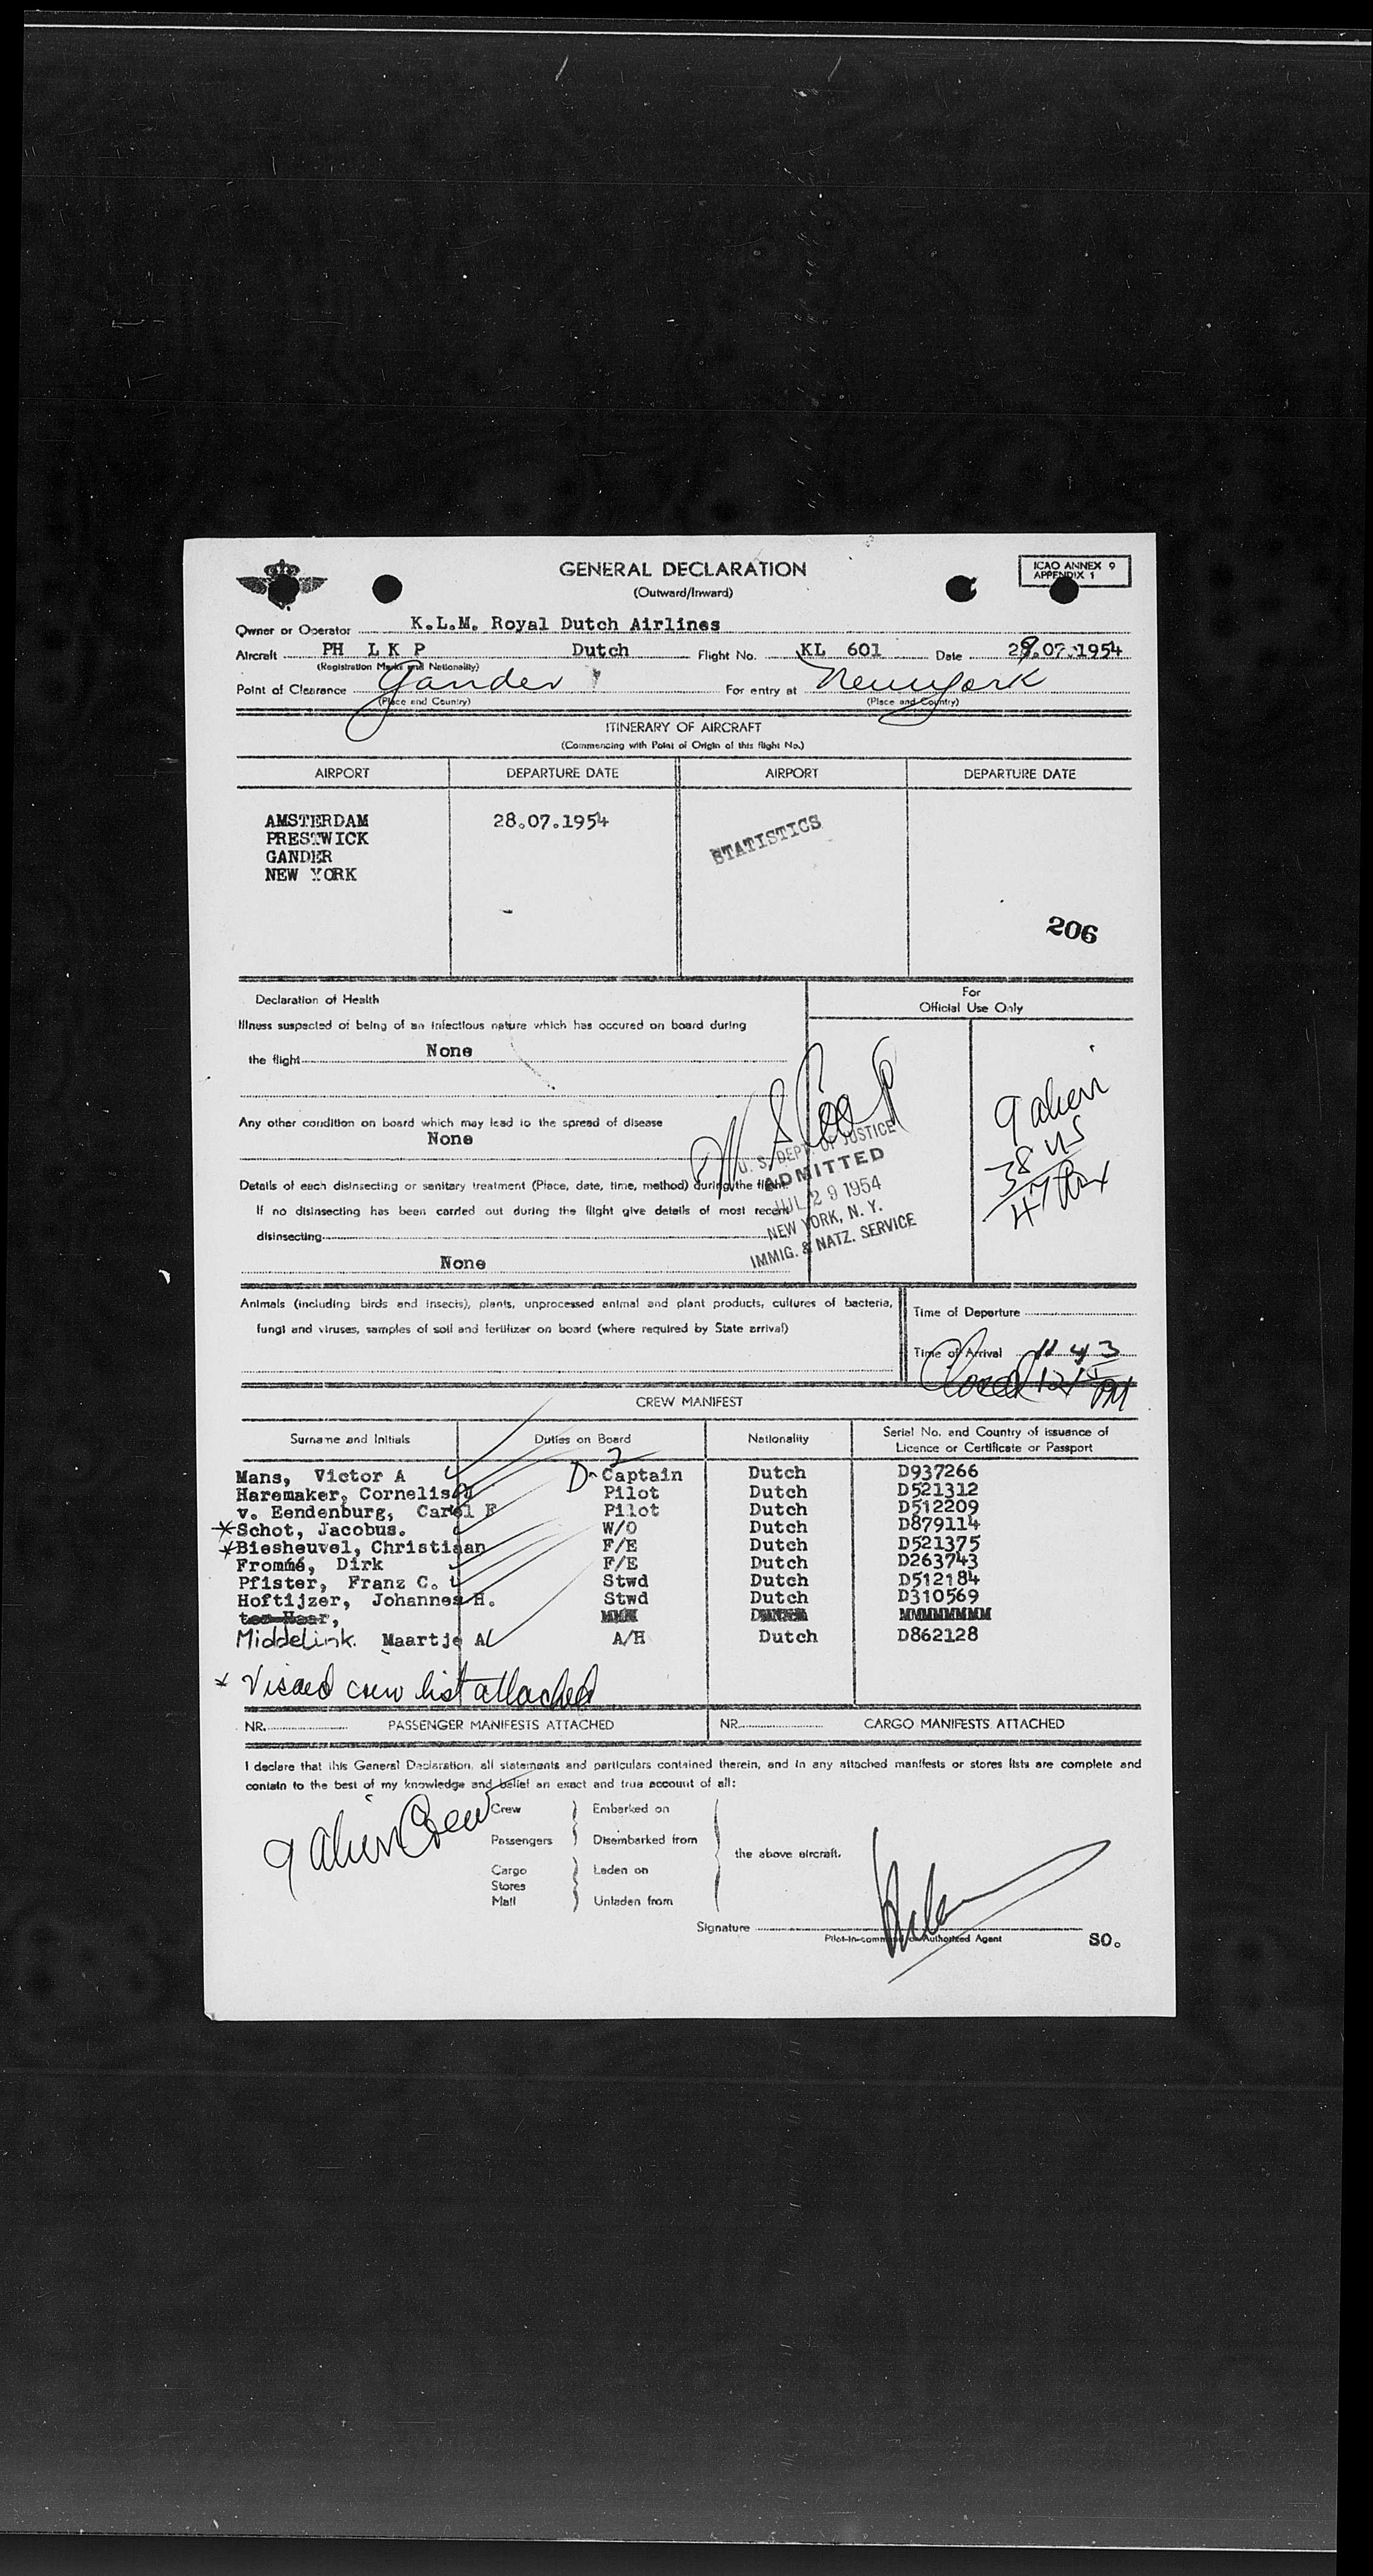 GENERAL DECLARATION
(Outward/Inward)
ICAO ANNEX 9
APPENDIX 1
Owner or Operator K.L.M. Royal Dutch Airlines
Aircraft PH L K P Dutch Flight No. KL 601 Date 29.07.1954
(Registration Marks and Nationality)
Point of Clearance Gander For entry at New York
(Place and Country) (Place and Country)
ITINERARY OF AIRCRAFT
(Commencing with Point of Origin of this flight No.)
AIRPORT DEPARTURE DATE AIRPORT DEPARTURE DATE
AMSTERDAM 28.07.1954
PRESTWICK
GANDER
NEW YORK
STATISTICS
206
Declaration of Health
For
Official Use Only
Illness suspected of being of an infectious nature which has occured on board during
the flight None
Any other condition on board which may lead to the spread of disease
None
Details of each disinsecting or sanitary treatment (Place, date, time, method) during the flight.
If no disinsecting has been carried out during the flight give details of most recent
disinsecting
None
U. S. DEPT. OF JUSTICE
ADMITTED
JUL 29 1954
NEW YORK, N. Y.
IMMIG. & NATZ. SERVICE
9 alien
38 US
47
Animals (including birds and insects), plants, unprocessed animal and plant products, cultures of bacteria,
fungi and viruses, samples of soil and fertilizer on board (where required by State arrival)
Time of Departure
Time of Arrival 11 43
Closed PM
CREW MANIFEST
Surname and Initials Duties on Board Nationality Serial No. and Country of issuance of
Licence or Certificate or Passport
Mans, Victor A Captain Dutch D937266
Haremaker, Cornelis Pilot Dutch D521312
v. Eendenburg, Carel F Pilot Dutch D512209
*Schot, Jacobus. W/O Dutch D879114
*Biesheuvel, Christiaan F/E Dutch D521375
Frommé, Dirk F/E Dutch D263743
Pfister, Franz C. Stwd Dutch D512184
Hoftijzer, Johannes H. Stwd Dutch D310569
ter Haar,
Middelink. Maartje A A/H Dutch D862128
* Visaed crew list attached
NR. PASSENGER MANIFESTS ATTACHED NR. CARGO MANIFESTS ATTACHED
I declare that this General Declaration, all statements and particulars contained therein, and in any attached manifests or stores lists are complete and
contain to the best of my knowledge and belief an exact and true account of all:
9 alien Crew
Crew Embarked on
Passengers Disembarked from
the above aircraft.
Cargo Laden on
Stores
Mail Unladen from
Signature
Pilot-in-command or Authorized Agent
SO.